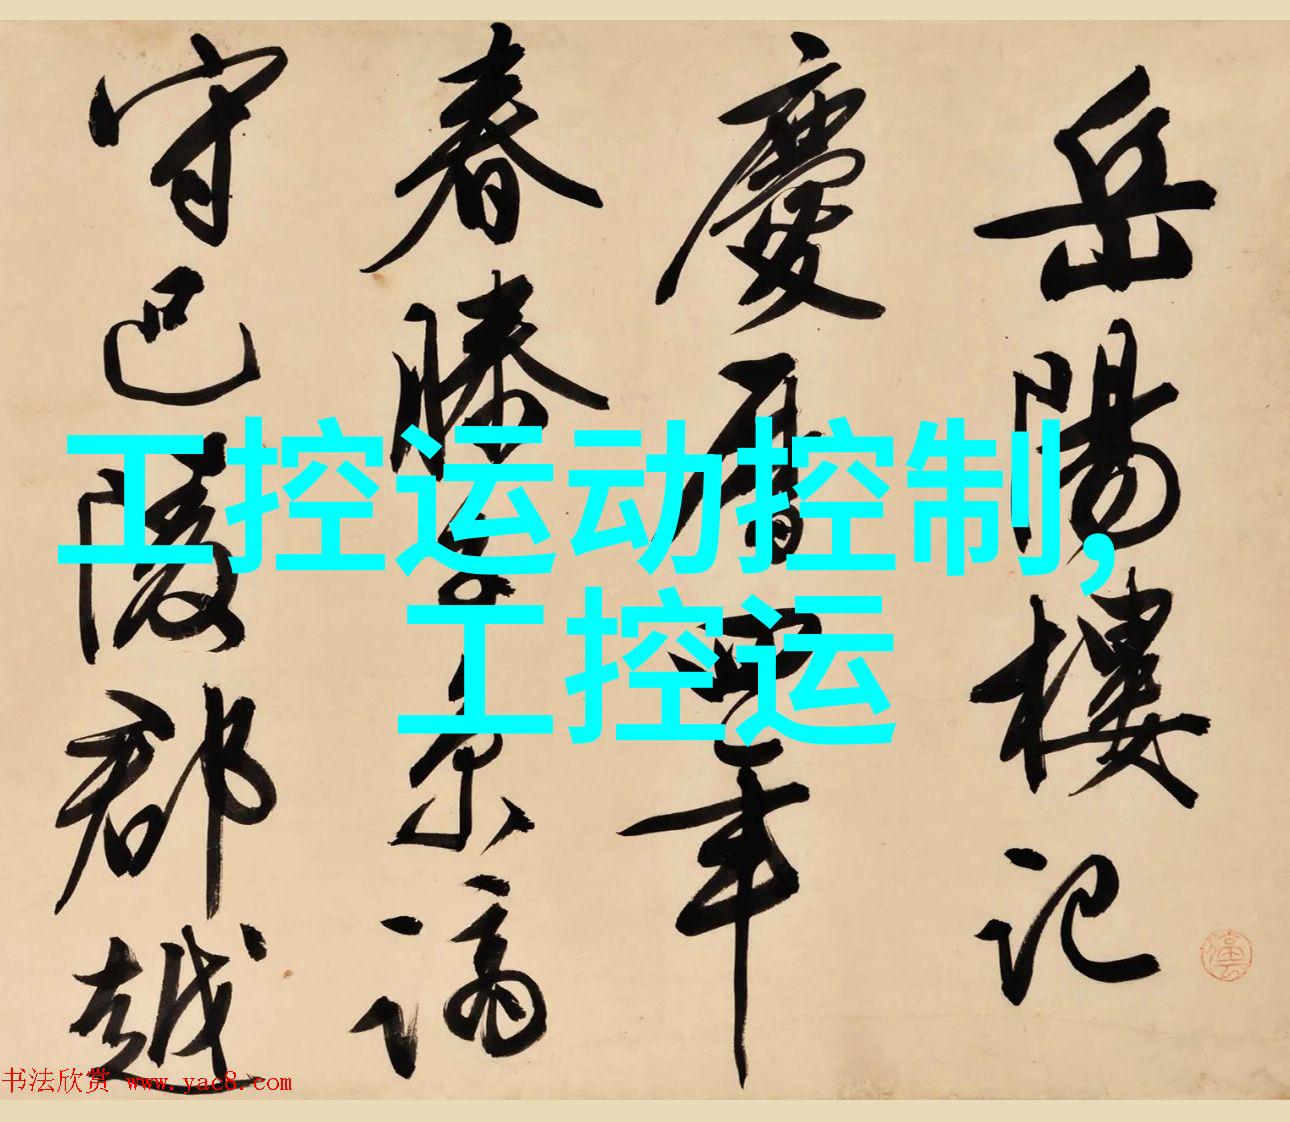 岳陽樓記
慶曆四年
春滕子京謫
守巴陵郡越
工控运动控制,
工控运
书法欣赏 www.yac8.com